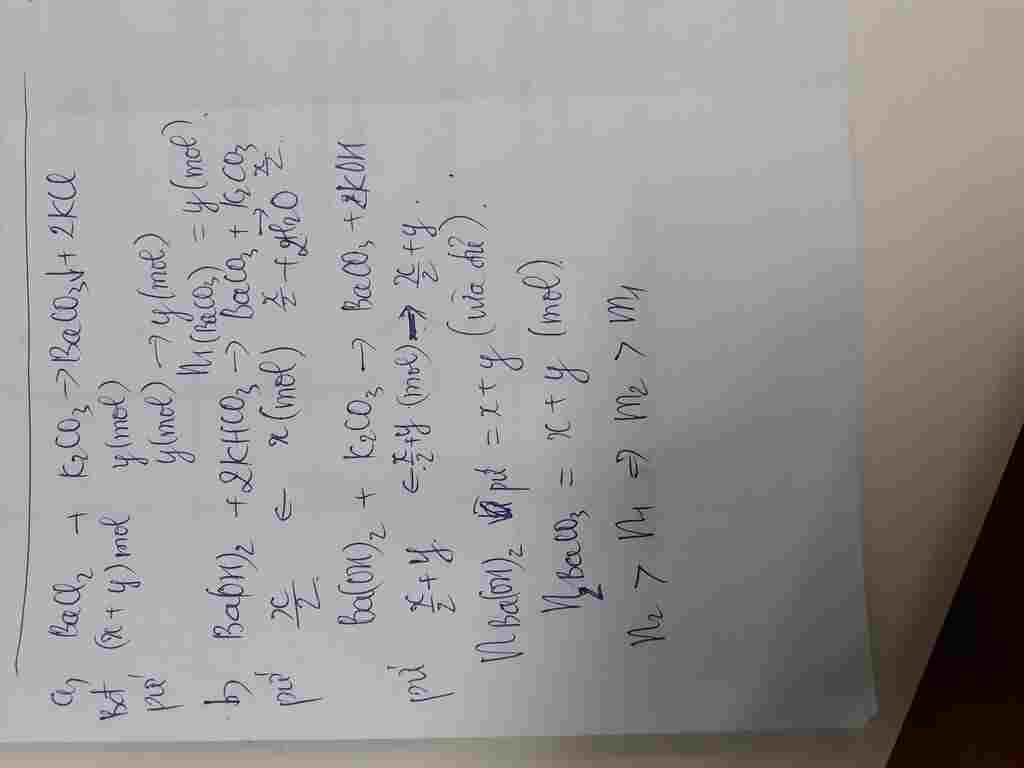 a, BaCl2 + K2CO3 → BaCO3↓ + 2KCl
Bđ (x + y) mol y (mol)
pứ y (mol) → y (mol)
n1 (BaCO3) = y (mol).
b, Ba(OH)2 + 2KHCO3 → BaCO3 + K2CO3 + 2H2O
pứ x/2 ← x (mol) → x/2 x/2
Ba(OH)2 + K2CO3 → BaCO3 + 2KOH
pứ x/2 + y ← x/2 + y (mol) → x/2 + y.
nBa(OH)2 pứ = x + y (vừa đủ).
n2BaCO3 = x + y (mol).
n2 > n1 ⇒ m2 > m1